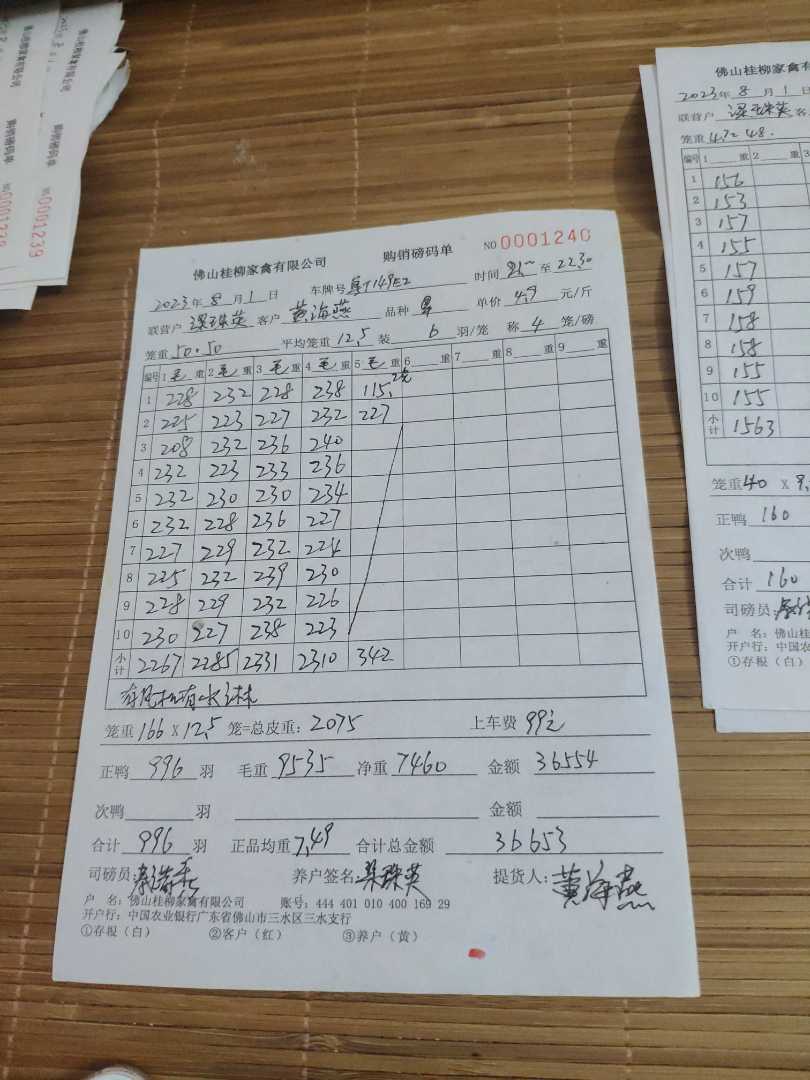 佛山桂柳家禽有限公司 购销磅码单 NO 0001240
2023年 8 月 1 日 车牌号 时间 至 2230
联营户 梁珠英 客户 黄海燕 品种 单价 4.9 元/斤
笼重 50·50 平均笼重 12.5 装 6 羽/笼 称 4 笼/磅
编号 1 毛 重 2 毛 重 3 毛 重 4 毛 重 5 毛 重 6 重 7 重 8 重 9 重
1 228 232 228 238 115
2 225 223 227 232 227
3 208 232 236 240
4 232 223 233 236
5 232 230 230 234
6 232 228 236 227
7 227 229 232 224
8 225 232 239 230
9 228 229 232 226
10 230 227 238 223
小计 2267 2285 2331 2310 342
笼重 166 X 12.5 笼=总皮重: 2075 上车费 99元
正鸭 996 羽 毛重 9535 净重 7460 金额 36554
次鸭 羽 金额
合计 996 羽 正品均重 7.49 合计总金额 36653
司磅员: 养户签名: 梁珠英 提货人: 黄海燕
户 名: 佛山桂柳家禽有限公司 账号: 444 401 010 400 169 29
开户行: 中国农业银行广东省佛山市三水区三水支行
①存根（白） ②客户（红） ③养户（黄）
佛山桂柳家禽有
2023年 8 月 1 日
联营户 梁珠英 客
笼重 47 48
编号 1 重 2 重 3
1 156
2 153
3 157
4 155
5 157
6 159
7 158
8 158
9 155
10 155
小计 1563
笼重 40 X
正鸭 160
次鸭
合计 160
司磅员:
户 名: 佛山桂
开户行: 中国农
①存根（白）
购销磅码单
NO 0001239